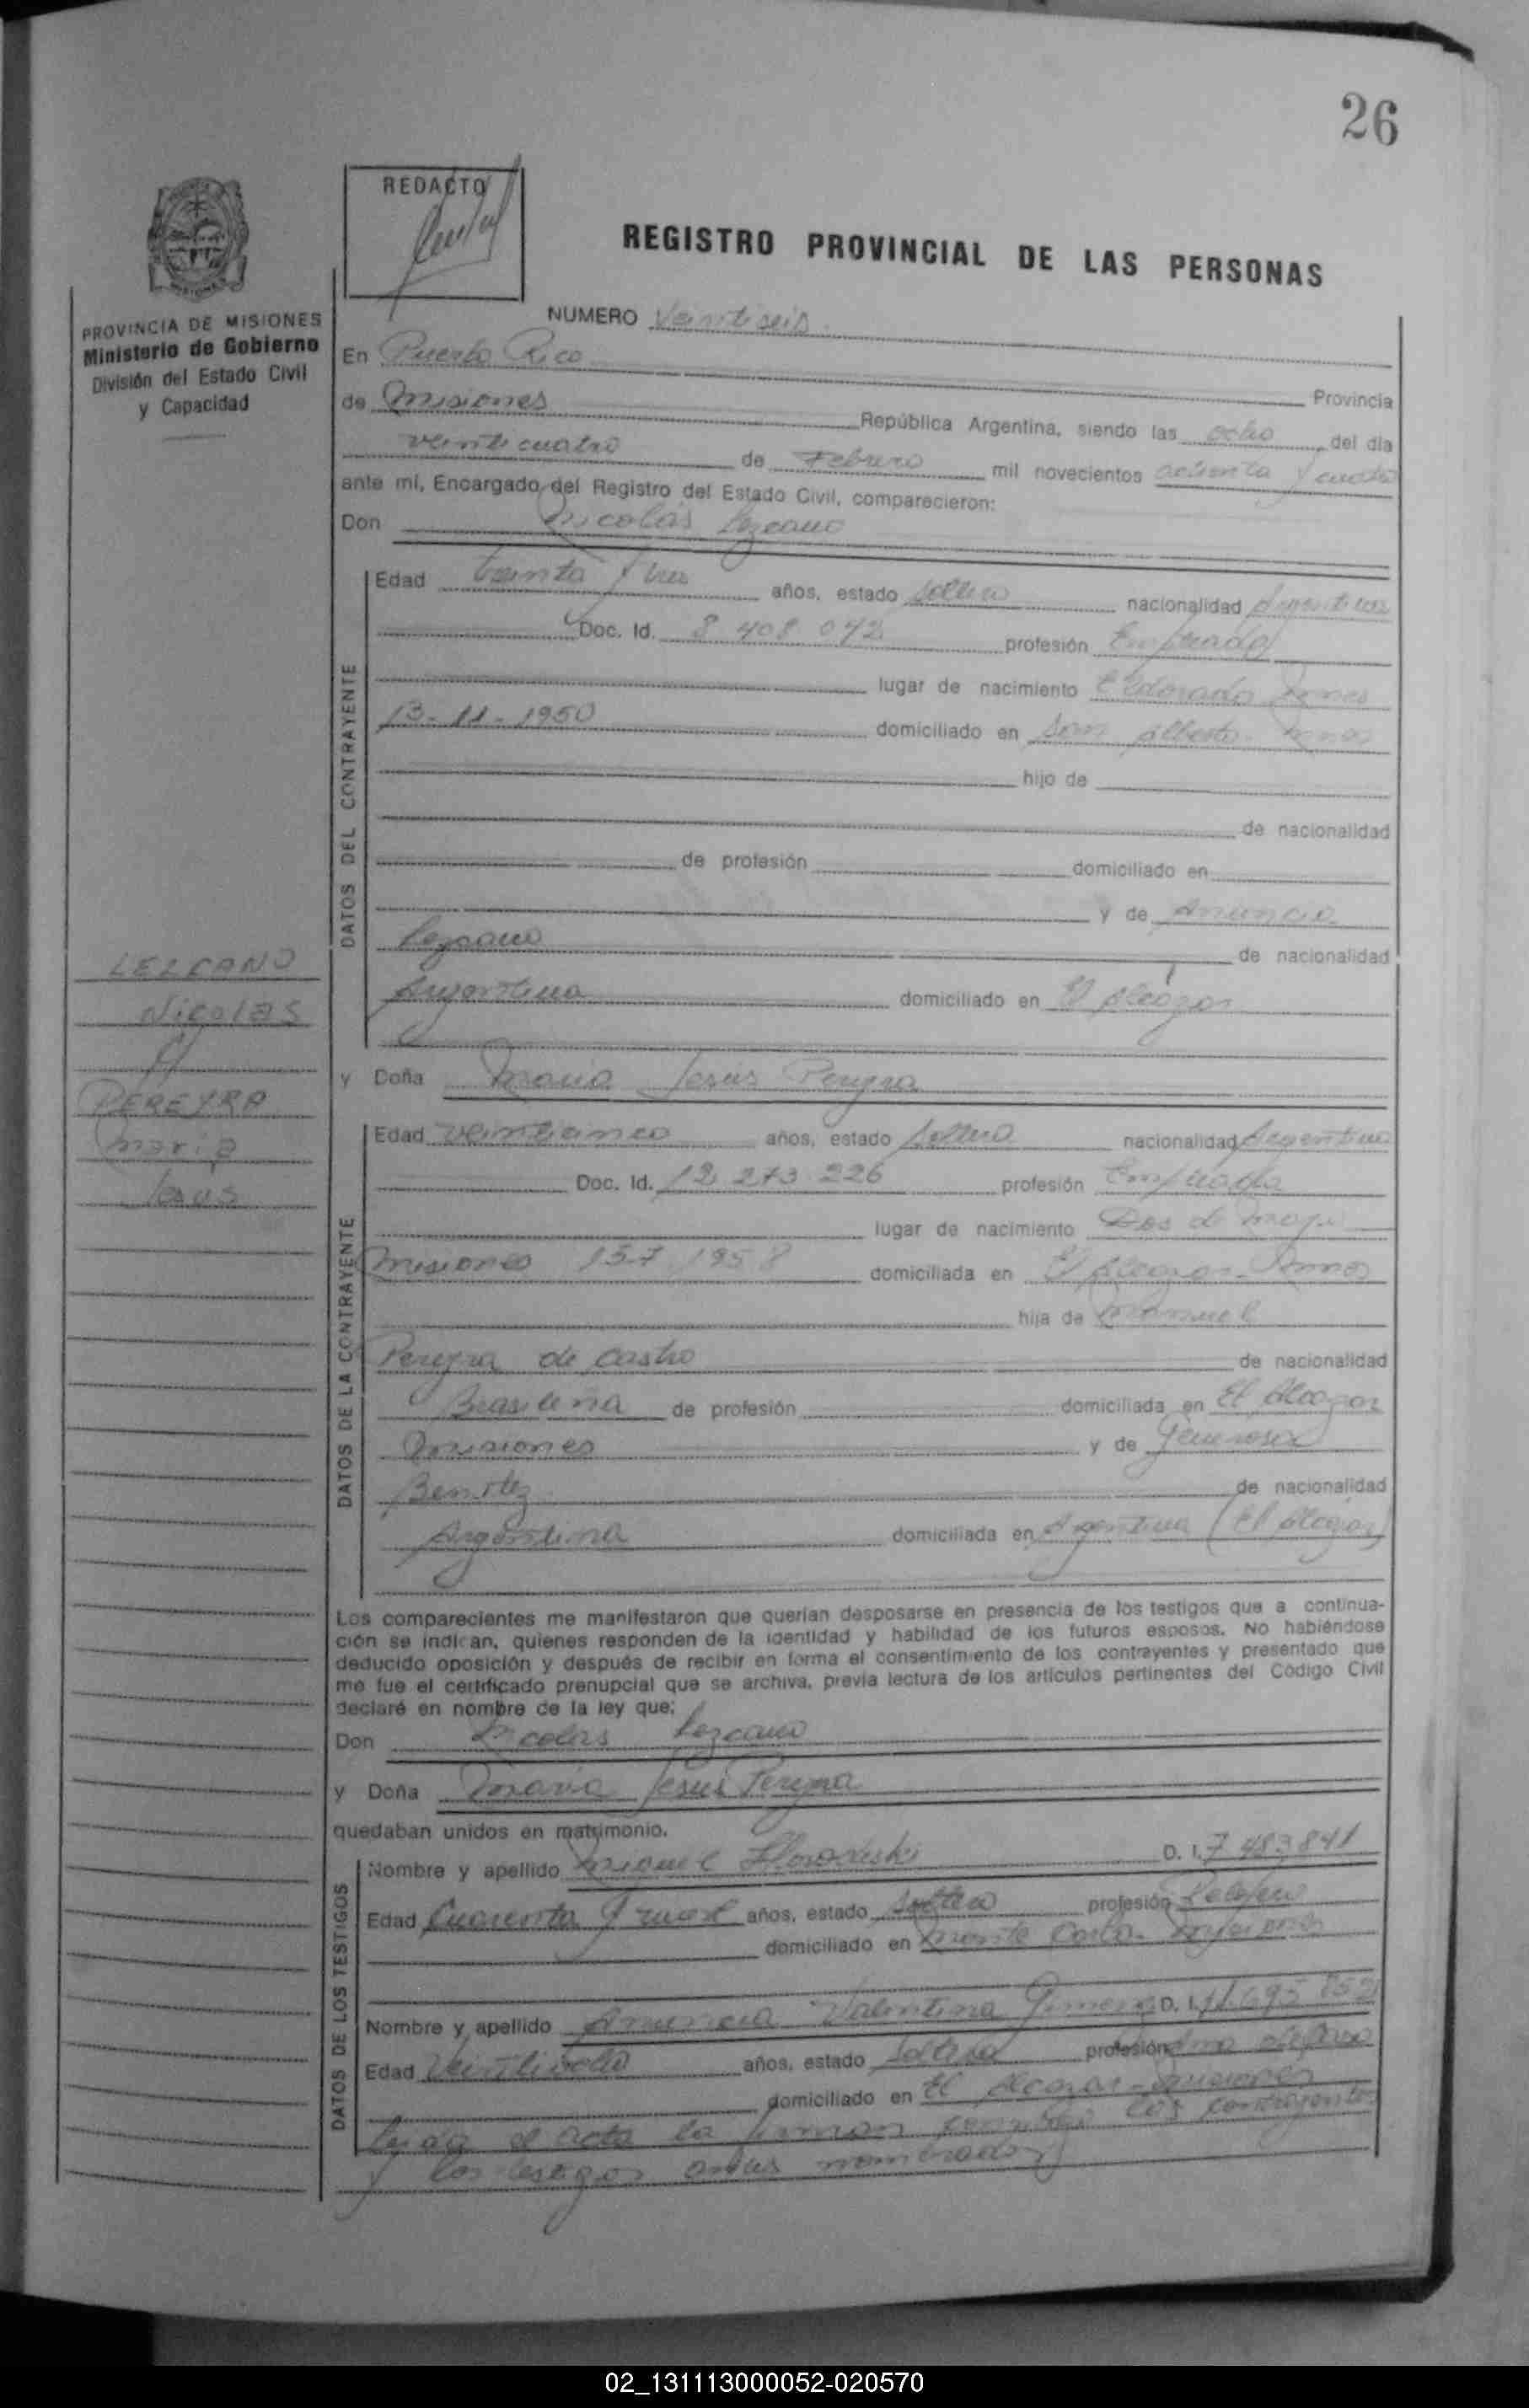 26
REDACTO
REGISTRO PROVINCIAL DE LAS PERSONAS
PROVINCIA DE MISIONES
Ministerio de Gobierno
División del Estado Civil
y Capacidad
NUMERO Veintiseis
En Puerto Rico
Provincia
de Misiones República Argentina, siendo las ocho del día
veinticuatro de Febrero mil novecientos ochenta y cuatro
ante mí, Encargado del Registro del Estado Civil, comparecieron:
Don Nicolás Lezcano
DATOS DEL CONTRAYENTE
Edad treinta y tres años, estado soltero nacionalidad Argentina
Doc. Id. 8 408 042 profesión Empleado
lugar de nacimiento Eldorado
13-11-1950 domiciliado en Alberto
hijo de
de nacionalidad
de profesión domiciliado en
y de Anuncia
Lezcano de nacionalidad
Argentina domiciliado en El Alcazar
LEZCANO
Nicolas
y
PEREYRA
Maria
Jesus
y Doña Maria Jesus Pereyra
DATOS DE LA CONTRAYENTE
Edad veinticinco años, estado soltera nacionalidad Argentina
Doc. Id. 12 273 226 profesión Empleada
lugar de nacimiento Dos de Mayo
Misiones 15 7 1958 domiciliada en El Alcazar
hija de Manuel
Pereyra de Castro de nacionalidad
Brasileña de profesión domiciliada en El Alcazar
Misiones y de Generosa
Benitez de nacionalidad
Argentina domiciliada en Argentina (El Alcazar)
Los comparecientes me manifestaron que querían desposarse en presencia de los testigos que a continua-
ción se indican, quienes responden de la identidad y habilidad de los futuros esposos. No habiéndose
deducido oposición y después de recibir en forma el consentimiento de los contrayentes y presentado que
me fue el certificado prenupcial que se archiva, previa lectura de los artículos pertinentes del Código Civil
declaré en nombre de la ley que:
Don Nicolas Lezcano
y Doña Maria Jesus Pereyra
quedaban unidos en matrimonio.
DATOS DE LOS TESTIGOS
Nombre y apellido Miguel D. I. 7 483 841
Edad Cuarenta y nueve años, estado soltero profesión
domiciliado en Monte Carlo Misiones
Nombre y apellido Valentina D. I. 11.695 852
Edad Veintiocho años, estado soltera profesión Ama de casa
domiciliado en El Alcazar - Misiones
Leida el acta la firman conmigo los contrayentes
y los testigos antes nombrados
02_131113000052-020570